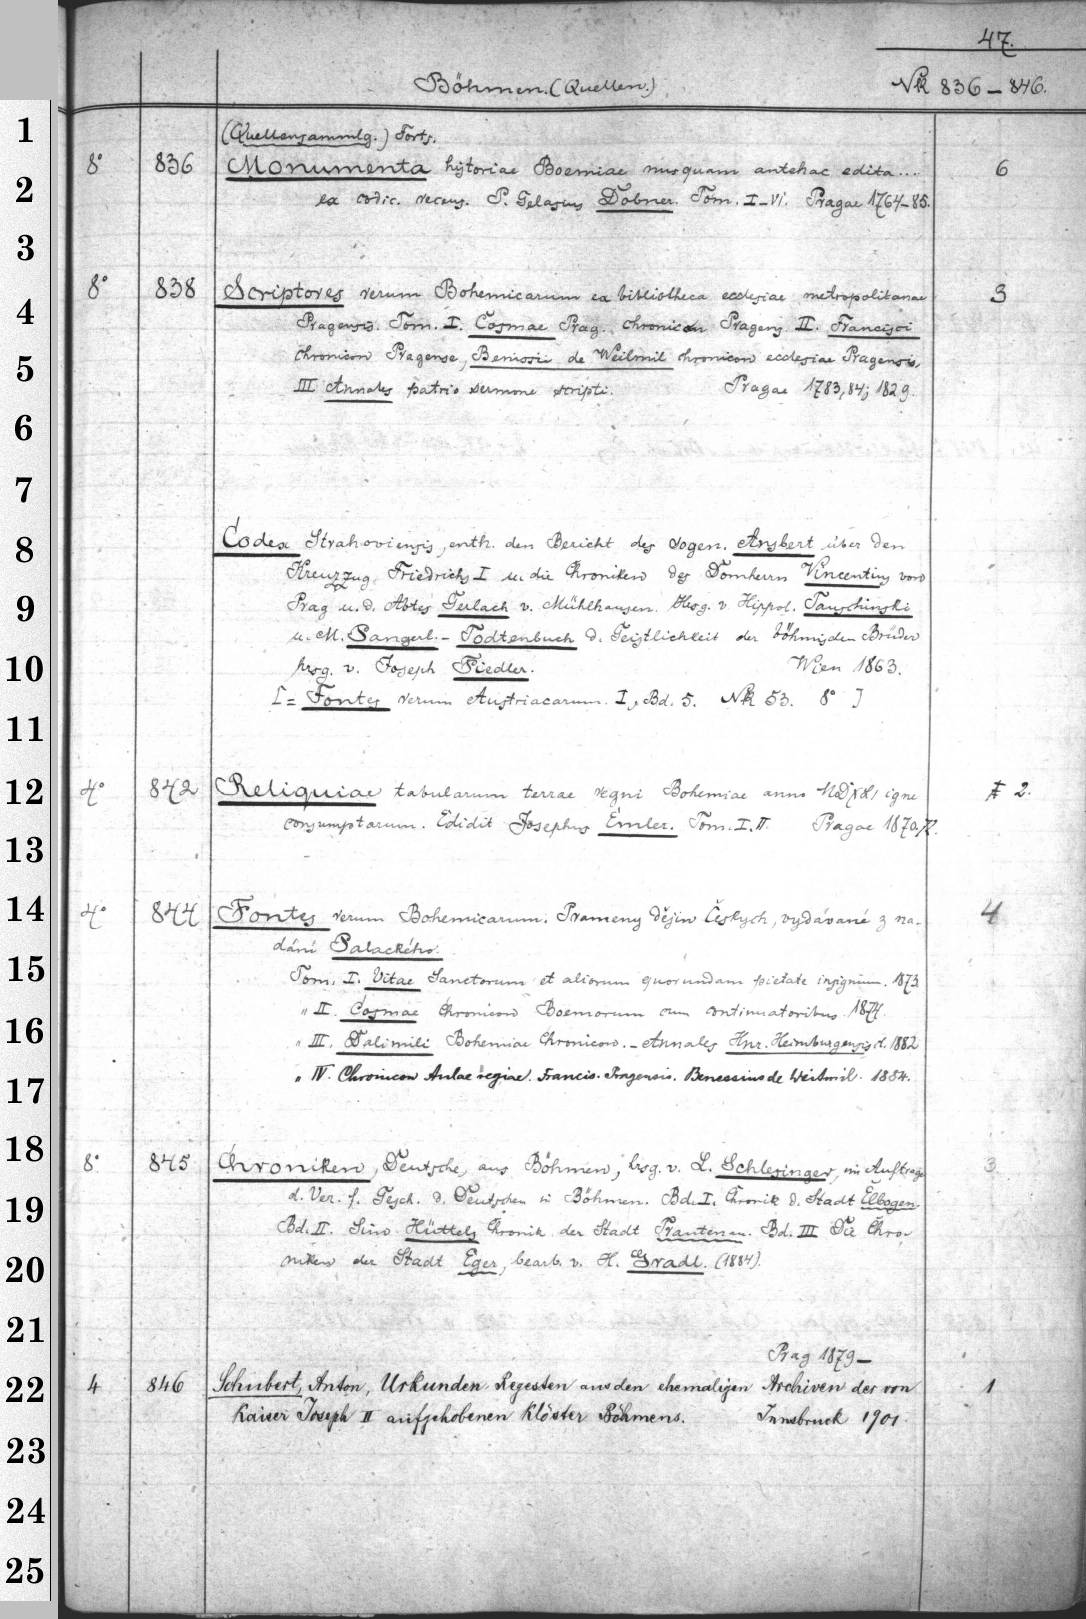 47.
Böhmen. (Quellen.) NR 836 – 846.
(Quellensammlg.) Forts.
8° 836 Monumenta historiae Boemiae nusquam antehac edita.... 6
ex codic. recens. P. Gelasius Dobner. Tom. I–VI. Pragae 1764–85.
8° 838 Scriptores rerum Bohemicarum ex bibliotheca ecclesiae metropolitanae 3
Pragensis. Tom. I. Cosmae Prag. chronicon Pragens. II. Francisci
chronicon Pragense, Benessii de Weitmil chronicon ecclesiae Pragensis,
III Annales patrio sermone scripti. Pragae 1783, 84; 1829.
Codex Strahoviensis, enth. den Bericht des sogen. Ansbert über den
Kreuzzug Friedrichs I u. die Chroniken des Domherrn Vincentius von
Prag u. d. Abtes Gerlach v. Mühlhausen. Hrsg. v. Hippol. Tauschinski
u. M. Pangerl. – Todtenbuch d. Geistlichkeit der böhmischen Brüder
hrsg. v. Joseph Fiedler. Wien 1863.
[= Fontes rerum Austriacarum. I, Bd. 5. NR 53. 8° ]
4° 842 Reliquiae tabularum terrae regni Bohemiae anno MDXLI igne 2.
consumptarum. Edidit Josephus Emler. Tom. I. II. Pragae 1870. 72.
4° 844 Fontes rerum Bohemicarum. Prameny dějin Českych, vydávané z na- 4
dání Palackého.
Tom. I. Vitae Sanctorum et aliorum quorundam pietate insignium. 1873.
" II. Cosmae Chronicon Boemorum cum continuatoribus. 1874.
" III. Dalimili Bohemiae Chronicon. – Annales Hnr. Heimburgensis. 1882
" IV. Chronicon Aulae regiae. Francis. Pragensis. Benessius de Weitmil. 1884.
8° 845 Chroniken, Deutsche, aus Böhmen, hrsg. v. L. Schlesinger, im Auftrage 3.
d. Ver. f. Gesch. d. Deutschen in Böhmen. Bd. I. Chronik d. Stadt Elbogen.
Bd. II. Simon Hüttels Chronik der Stadt Trautenau. Bd. III Die Chro-
niken der Stadt Eger, bearb. v. H. Gradl. (1884).
Prag 1879 –
4 846 Schubert, Anton, Urkunden Regesten aus den ehemaligen Archiven der von 1
Kaiser Joseph II aufgehobenen Klöster Böhmens. Innsbruck 1901.
1
2
3
4
5
6
7
8
9
10
11
12
13
14
15
16
17
18
19
20
21
22
23
24
25